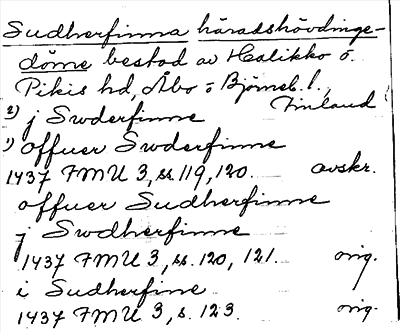 Sudherfinna häradshövdinge-
döme bestod av Halikko o.
Pikis hd, Åbo o Björneb. l.,
Finland
2) j Swderfinne
1) offuer Swderfinne
1437 FMU 3, ss. 119, 120. avskr.
offuer Sudherfinne
j Swdherfinne
1437 FMU 3, ss. 120, 121. orig.
i Sudherfine
1437 FMU 3, s. 123. orig.